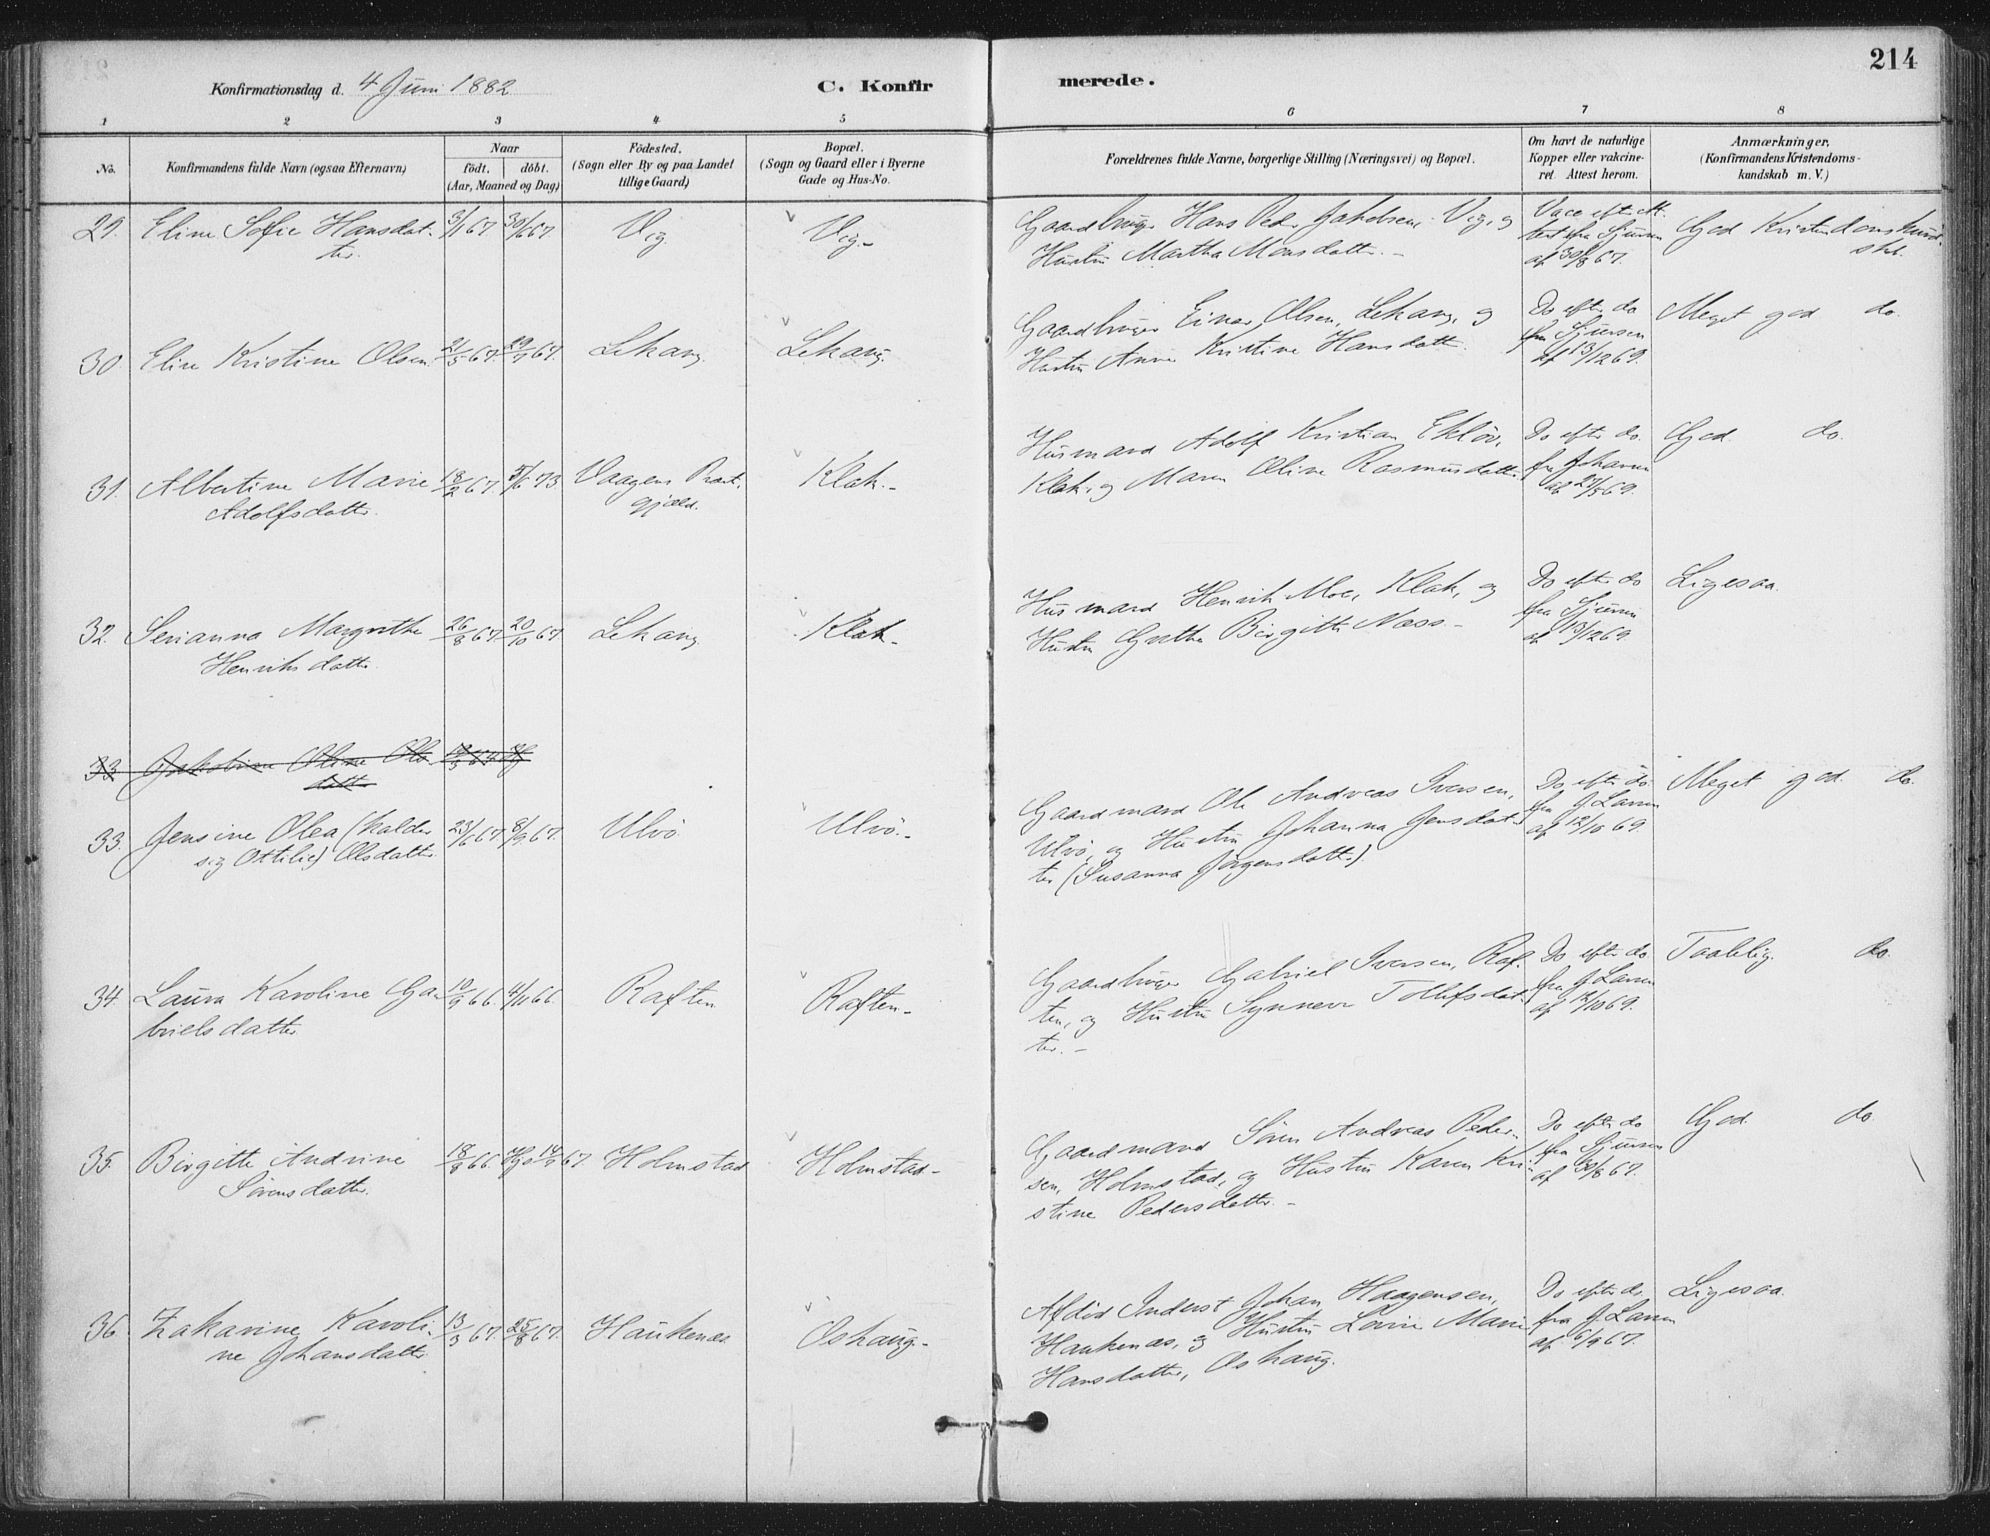 214
Konfirmationsdag d. 4 Juni 1882
C. Konfirmerede.
1 2 3 4 5 6 7 8
No.
Konfirmandens fulde Navn (ogsaa Efternavn)
Naar
födt. döbt.
(Aar, Maaned og Dag)
Födested.
(Sogn eller By og paa Landet
tillige Gaard)
Bopæl.
(Sogn og Gaard eller i Byerne
Gade og Hus-No.
Forældrenes fulde Navne, borgerlige Stilling (Næringsvei) og Bopæl.
Om havt de naturlige
Kopper eller vakcine-
ret. Attest herom.
Anmærkninger.
(Konfirmandens Kristendoms-
kundskab m. V.)
29. Eline Sofie Hansdat-
ter.
30/6 67 Vig Vig.-
Gaardbruger Hans Peder Jakobsen, Vig, og
Hustru Martha Monsdatter.-
Vacc. efter At-
test fra Sjursen
af 30/8 67.
God Kristendomskund-
skb.
30 Eline Kristine Olsen 21/5 67. 29/9 67. Lekang Lekang
Gaardbruger Einar Olsen, Lekang, og
Hustru Anne Kristine Hansdatter.
Do efter do
fra Sjursen
af 13/12 69.
Meget god do.
31. Albertine Marie
Adolfsdatter.
13/2 67. 5/6 73. Vaagens Præst-
gjæld.
Klak.-
Husmand Adolf Kristian Eklöv,
Klak, og Maren Oline Rasmusdatter
Do efter do.
fra Johansen
af 27/5 69.
God. do.
32. Serianna Margrethe
Henriksdatter.
26/8 67. 20/10 67. Lekang Klak.-
Husmand Henrik Moe, Klak, og
Hustru Grethe Birgitte Nass.-
Do efter do
fra Sjursen
af 13/12 69.
Ligesaa
33 Jakobine Oline Ols-
datter
33. Jensine Olea (kalder
sig Ottilie) Olsdatter.
23/6 67. 8/9 67. Ulvö Ulvö.-
Gaardmand Ole Andreas Iversen,
Ulvö, og Hustru Johanna Jensdat-
ter (Susanna Jörgensdatter)
Do efter do.
fra J. Larsen
af 12/10 69.
Meget god. do.
34. Laura Karoline Ga-
brielsdatter
10/9 66. 4/11 66. Raften Raften.-
Gaardbruger Gabriel Iversen, Raf-
ten, og Hustru Synneve Tollefsdat-
ter.-
Do efter do
fra J. Larsen
af 12/10 69.
Taalelig. do.
35. Birgitte Andrine
Sörensdatter.
18/9 66. Holmstad Holmstad.-
Gaardmand Sören Andreas Peder-
sen, Holmstad, og Hustru Karen Kri-
stine Pedersdatter.-
Do efter do
fra Sjursen
af 30/8 67.
God. do
36. Zakarine Karoli-
ne Johansdatter
13/3 67. 25/8 67. Haukenæs Oshaug.-
Afdöd Inderst Johan Haagensen,
Haukenæs, og Hustru Lovise Marie
Hansdatter, Oshaug.
Do efter do.
fra J. Larsen
af 6/9 67.
Ligesaa.